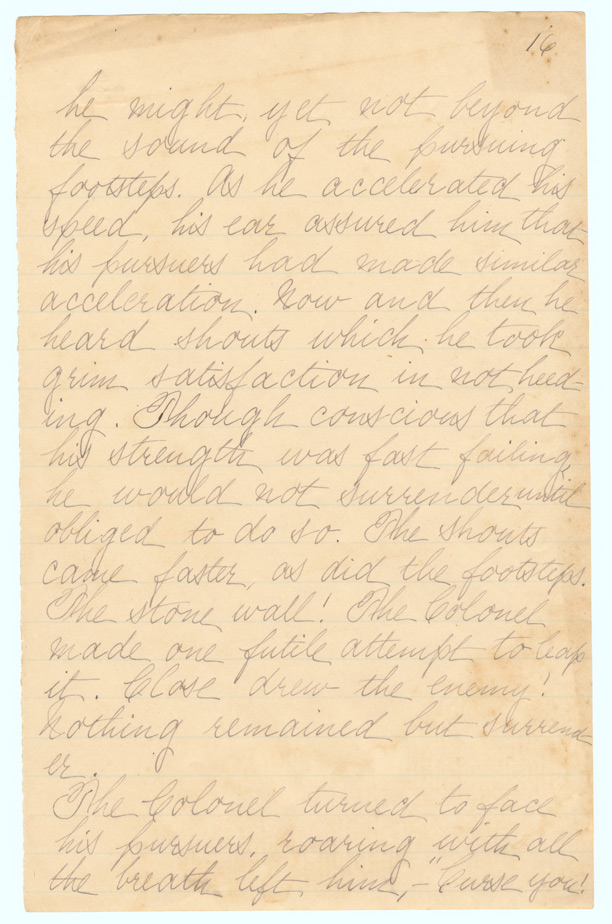 16.
he might, yet not beyond
the sound of the pursuing
footsteps. As he accelerated his
speed, his ear assured him that
his pursuers had made similar
acceleration. Now and then he
heard shouts which he took
grim satisfaction in not heed-
ing. Though conscious that
his strength was fast failing,
he would not surrender until
obliged to do so. The shouts
came faster, as did the footsteps.
The stone wall! The Colonel
made one futile attempt to leap
it. Close drew the enemy!
Nothing remained but surrend
er.
The Colonel turned to face
his pursuers, roaring with all
the breath left him,-"Curse you!